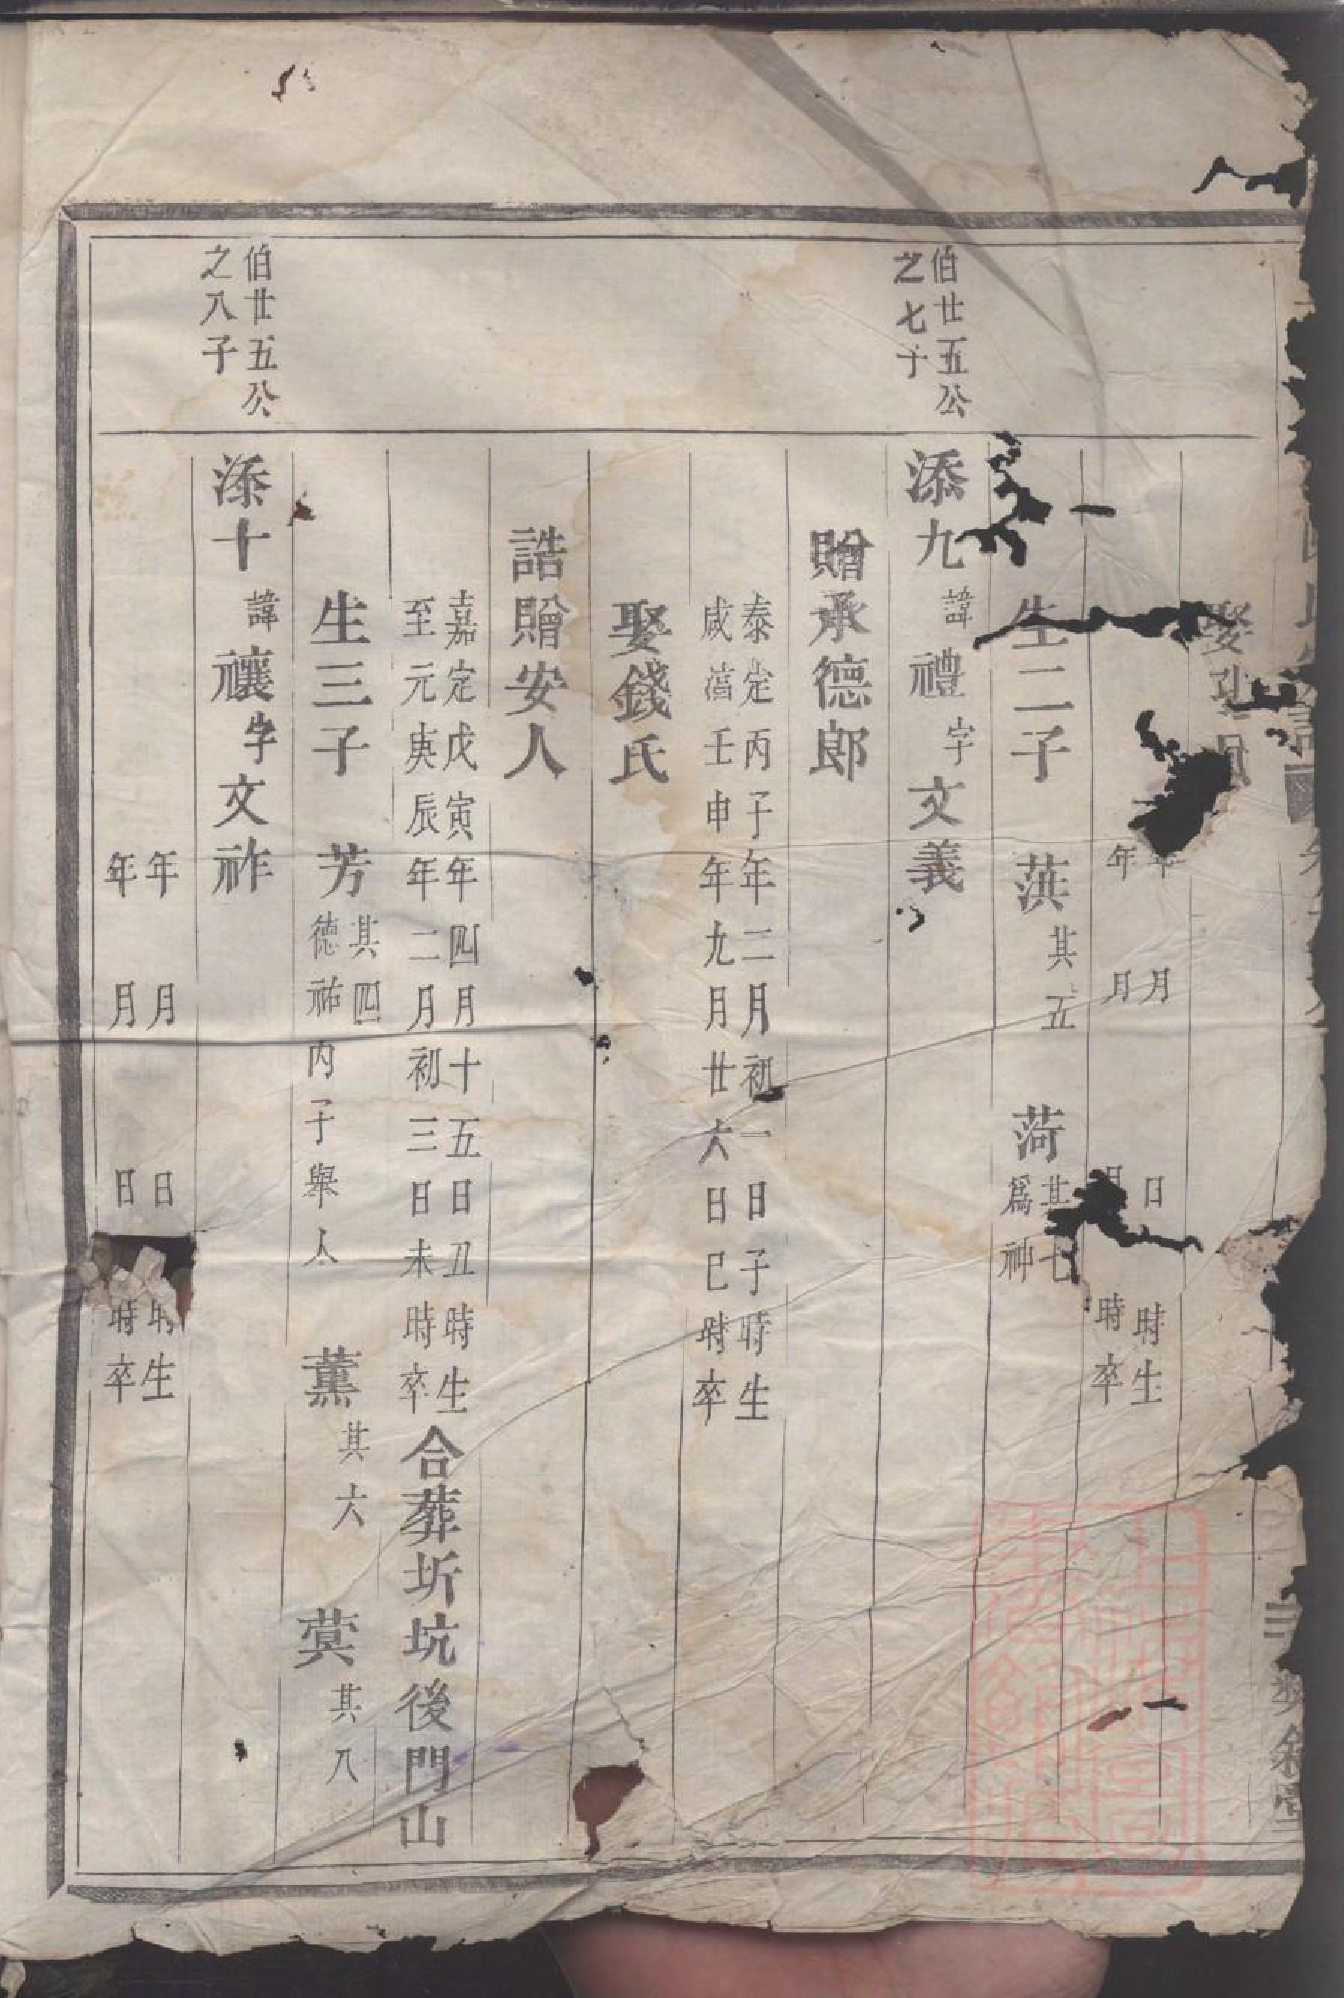 娶
年月日時生
年月日時卒
生二子 葓其五 菏其七爲神
伯廿五公
之七子
添九諱禮字文義
贈承德郎
泰定丙子年二月初一日子時生
咸湻壬申年九月廿六日巳時卒
娶錢氏
誥贈安人
嘉定戊寅年四月十五日丑時生
至元庚辰年二月初三日未時卒
合葬圻坑後門山
生三子 芳其四德祐丙子舉人 薰其六 蓂其八
伯廿五公
之八子
添十諱禳字文祚
年月日時生
年月日時卒